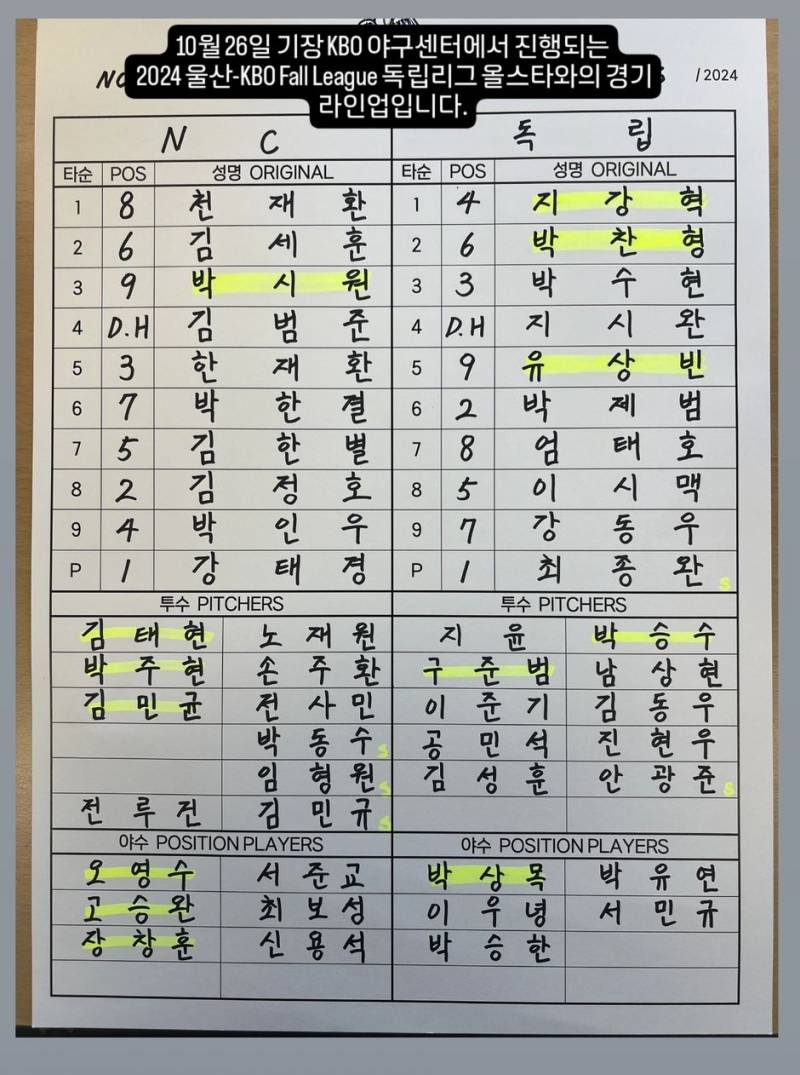 10월 26일 기장 KBO 야구센터에서 진행되는
2024 울산-KBO Fall League 독립리그 올스타와의 경기
라인업입니다.
/ 2024
N C 독 립
타순 POS 성명 ORIGINAL 타순 POS 성명 ORIGINAL
1 8 천 재 환 1 4 지 강 혁
2 6 김 세 훈 2 6 박 찬 형
3 9 박 시 원 3 3 박 수 현
4 D.H 김 범 준 4 D.H 지 시 완
5 3 한 재 환 5 9 유 상 빈
6 7 박 한 결 6 2 박 제 범
7 5 김 한 별 7 8 엄 태 호
8 2 김 정 호 8 5 이 시 맥
9 4 박 인 우 9 7 강 동 우
P 1 강 태 경 P 1 최 종 완 s
투수 PITCHERS 투수 PITCHERS
김 태 현 노 재 원 지 윤 박 승 수
박 주 현 손 주 환 구 준 범 남 상 현
김 민 균 전 사 민 이 준 기 김 동 우
박 동 수 s 공 민 석 진 현 우
임 형 원 s 김 성 훈 안 광 준 s
전 루 건 김 민 규 s
야수 POSITION PLAYERS 야수 POSITION PLAYERS
오 영 수 서 준 교 박 상 목 박 유 연
고 승 완 최 보 성 이 우 녕 서 민 규
장 창 훈 신 용 석 박 승 한